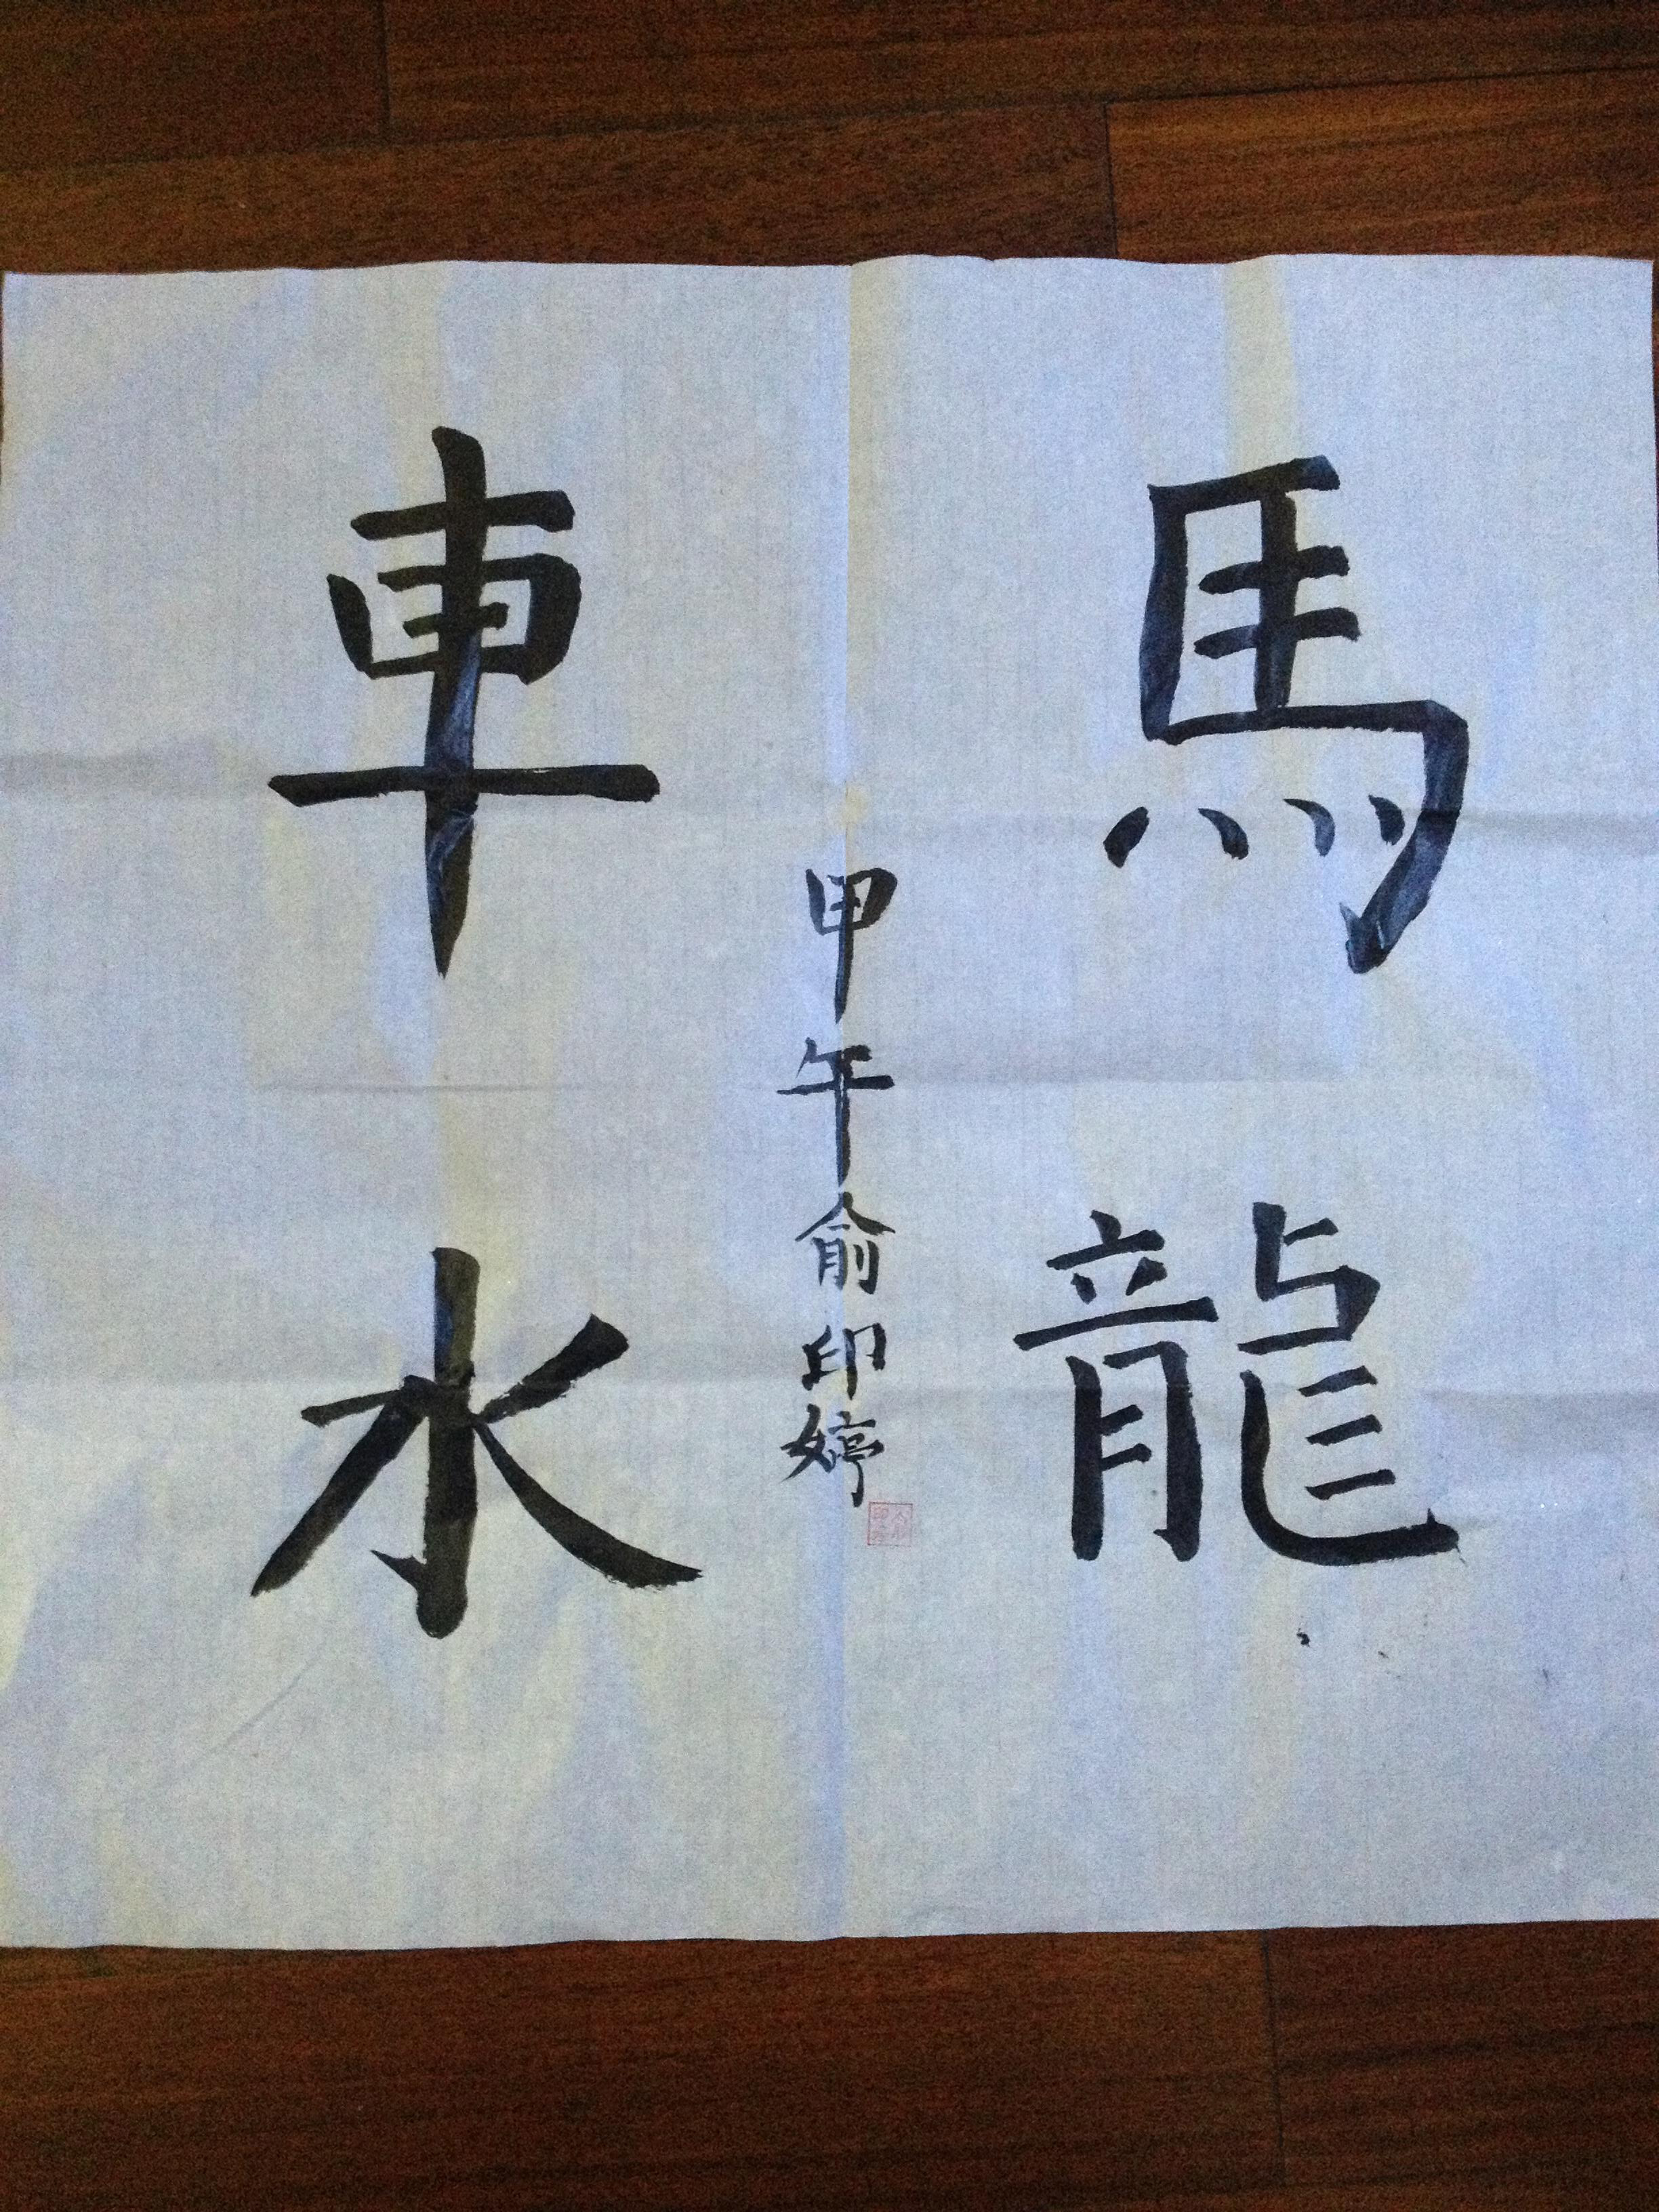 車水
馬龍
甲午俞印婷